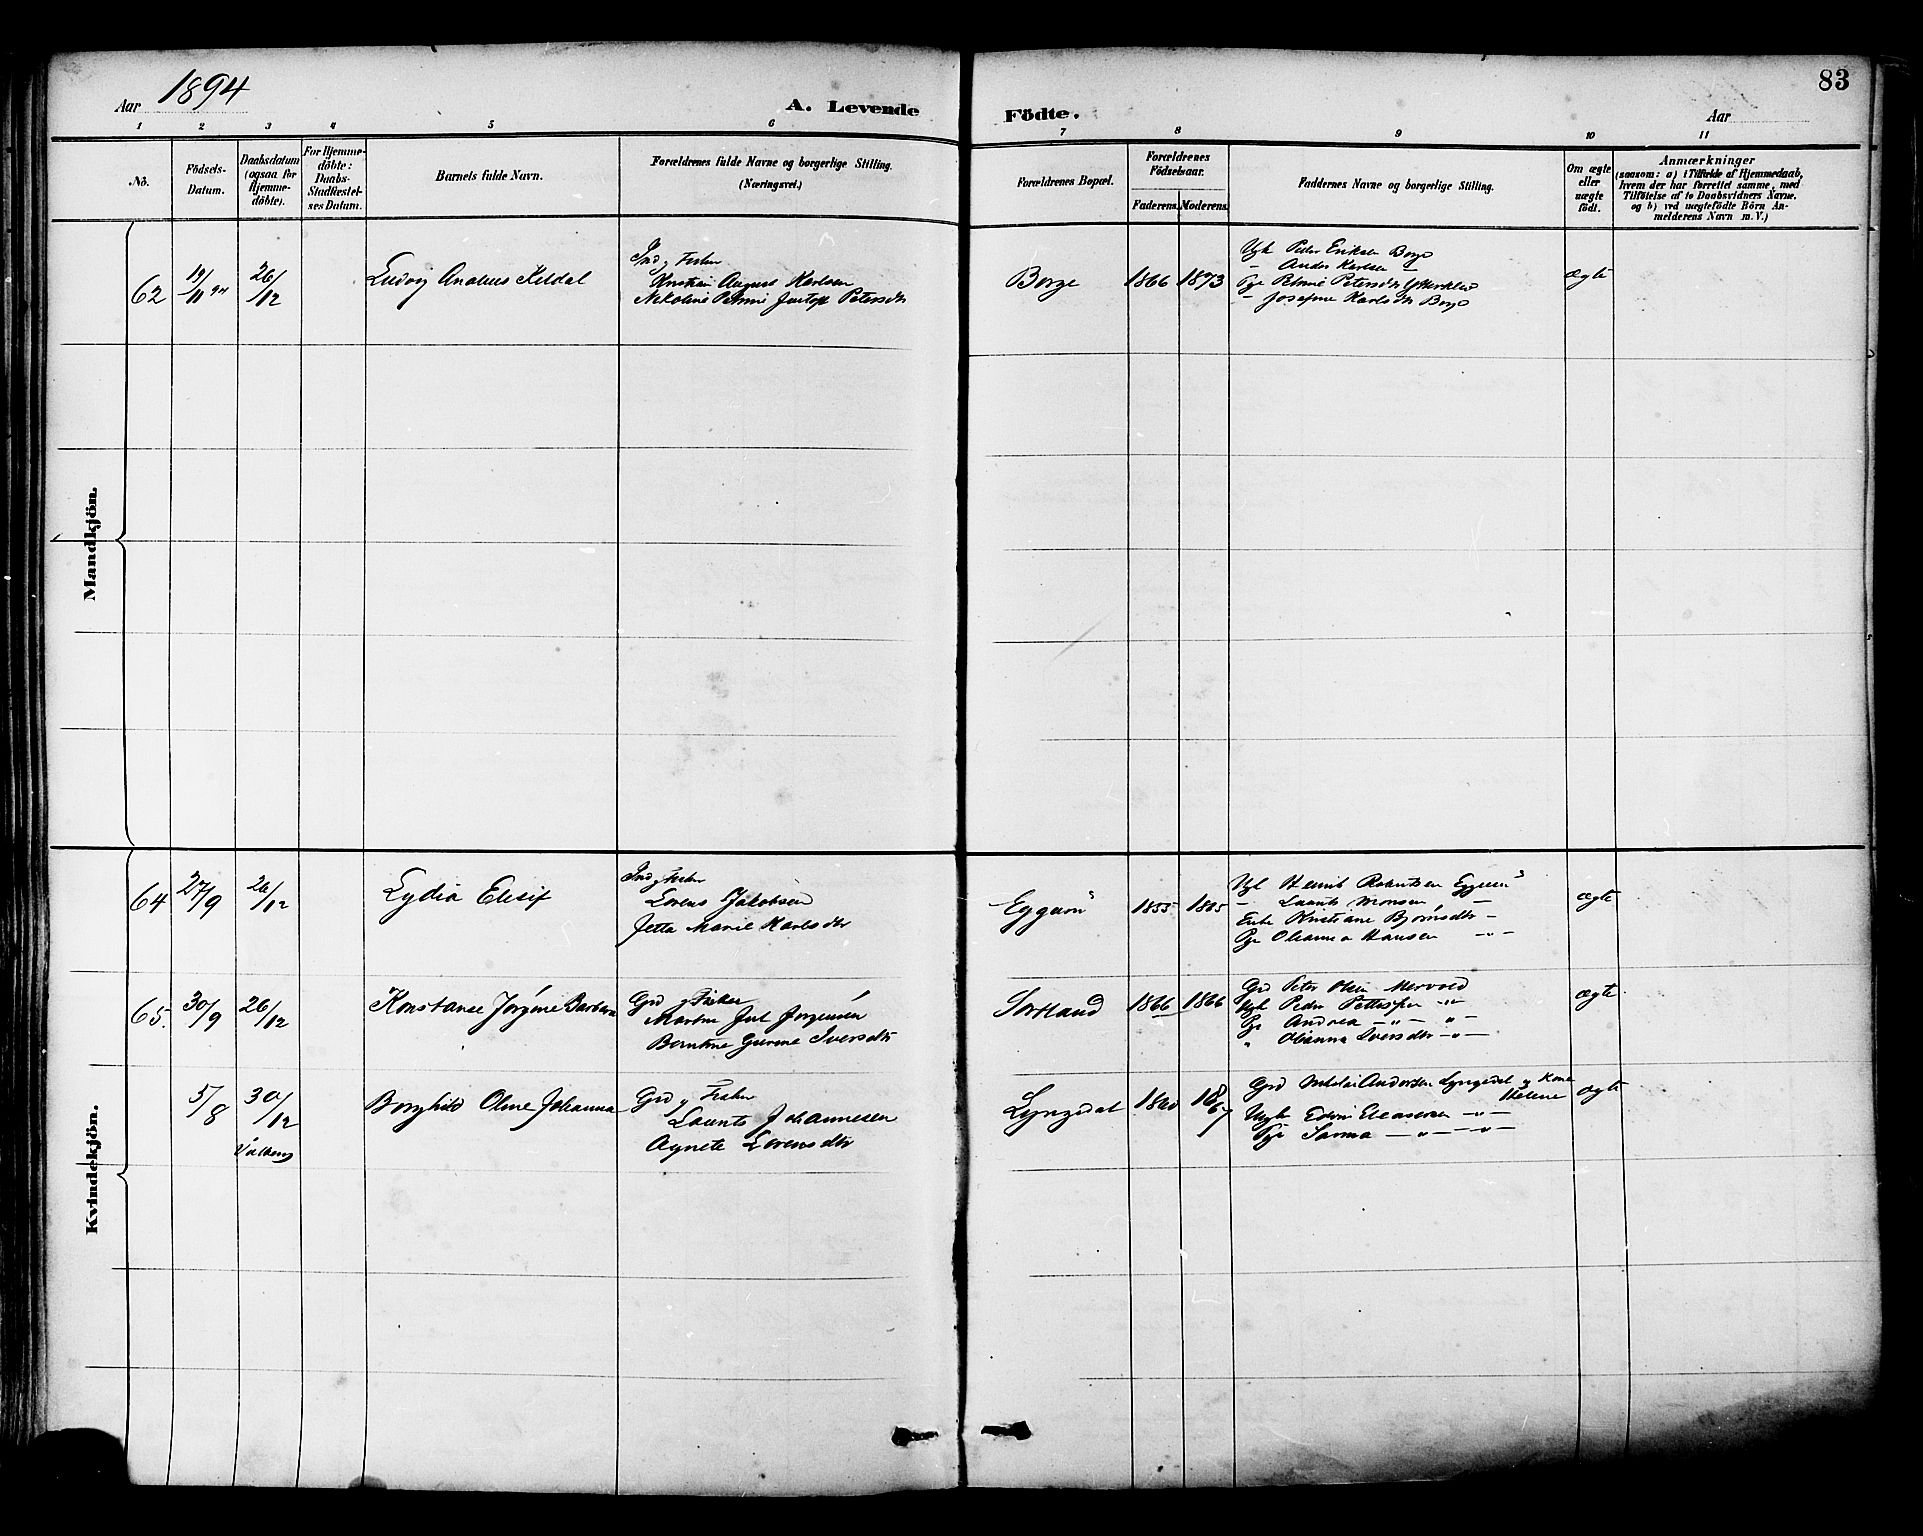 83
Aar 1894
A. Levende
Födte.
Aar
1 2 3 4 5 6 7 8 9 10 11
No.
Födsels-
Datum.
Daabsdatum
(ogsaa for
Hjemme-
döbte).
For Hjemme-
döbte:
Daabs-
Stadfæstel-
ses Datum.
Barnets fulde Navn.
Forældrenes fulde Navne og borgerlige Stilling.
(Næringsvei.)
Forældrenes Bopæl.
Forældrenes
Födselsaar.
Faderens. Moderens.
Faddernes Navne og borgerlige Stilling.
Om ægte
eller
uægte
födt.
Anmærkninger
(saasom: a) i Tilfælde af Hjemmedaab,
hvem der har forrettet samme, med
Tilföielse af to Daabsvidners Navne,
og b) ved uægtefödte Börn An-
melderens Navn m. V.)
Mandkjön.
62
19/11 94
26/12
Ludvig Kildal
Ind y Fisker
Kristian August Karlsen
Nikoline Petersdtr
Borge
1866
1873
Ugk Peder Eriksen Borge
- Karlsen -
Pge Petersdtr
- Josefine Karlsdtr Borge
ægte
Kvindekjön.
64
27/9
26/12
Lydia Elisif
Ind y Fisker
Lorens Jakobsen
Jetta Marie Karlsdtr
Eggum
1855
Henrik Robertsen Eggum
- Laurits Monsen -
Enke Kristiane Bjørnsdtr -
Pge Oleanna Hansen -"-
ægte
65.
30/9
26/12
Konstanse Jørgine Barbara
Grd y Fisker
Jul Jørgensen
Iversdtr
Sortland
1866
1866
Grd Peter Olsen Mervold
Ugk Peder -"-
Pge Andrea -"- -"-
" Olianna Iversdtr -"-
ægte
5/8
30/12
Valberg
Borghild Oline Johanna
Grd y Fisker
Laurits Johannesen
Agnete Lorensdtr
Lyngedal
1867
Grd Nikolai Andersen Lyngedal y Kone
Helene
Ungk Edvin Eleasersen -"-
Pge Sanna -"- -"-
ægte